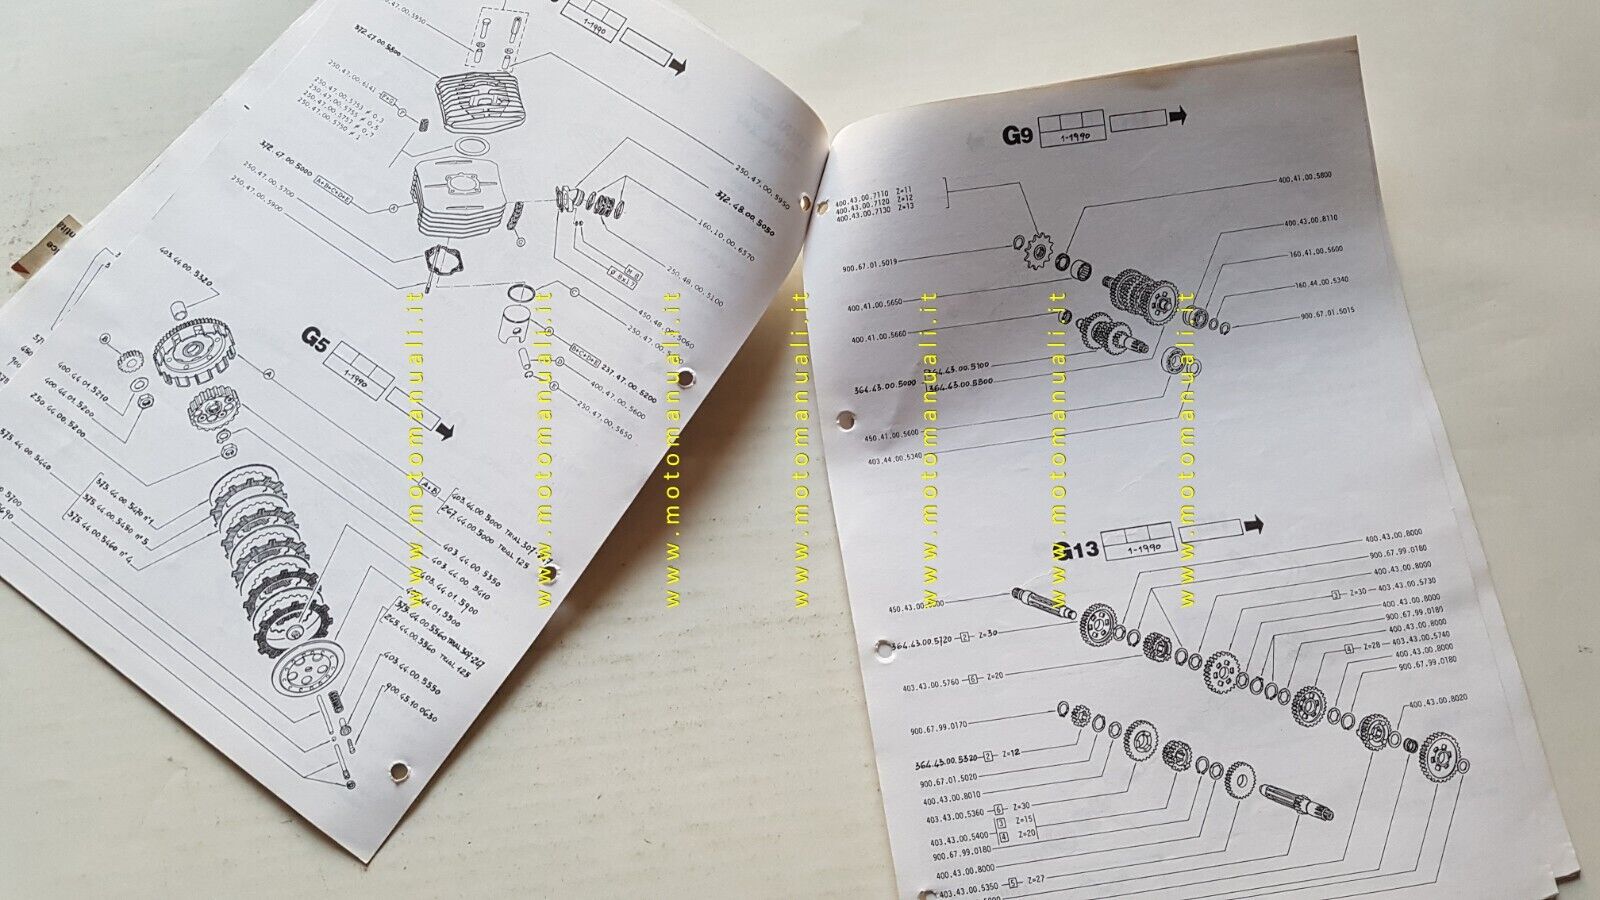 250.47.00.5950
372.47.00.5800
250.47.00.6141
F+G
250.47.00.5753 ≠ 0,3
250.47.00.5755 ≠ 0,5
250.47.00.5757 ≠ 0,7
250.47.00.5750 ≠ 1
372.47.00.5000
A+B+C+D+E
250.47.00.5700
250.47.00.5900
1-1990
250.47.00.5950
372.48.00.5050
160.10.00.6570
250.48.00.5100
M 8
Ø 8x17
450.48.00.5060
B+C+D+E
237.47.00.5200
400.47.00.5600
250.47.00.5650
403.44.00.5320
G5
1-1990
400.44.01.5210
400.44.01.5200
250.44.00.5200
375.44.00.5440
375.44.00.5470 n°1
375.44.00.5450 n°5
375.44.00.5460 n°4
A+B
403.44.00.5000 TRIAL 307-247
267.44.00.5000 TRIAL 125
403.44.00.5350
403.44.00.5410
403.44.01.5900
375.44.00.5360 TRIAL 307-247
265.44.00.5360 TRIAL 125
403.44.00.5550
900.45.10.0630
G9
1-1990
400.43.00.7110 Z=11
400.43.00.7120 Z=12
400.43.00.7130 Z=13
400.41.00.5800
400.43.00.8110
160.41.00.5600
160.44.00.5340
900.67.01.5015
900.67.01.5019
400.41.00.5650
400.41.00.5660
364.43.00.5000
364.43.00.5100
364.43.00.5300
450.41.00.5600
403.44.00.5340
G13
1-1990
400.43.00.8000
900.67.99.0180
400.43.00.8000
403.43.00.5730
3 Z=30
400.43.00.8000
900.67.99.0180
400.43.00.8000
403.43.00.5740
4 Z=28
400.43.00.8000
900.67.99.0180
400.43.00.8020
364.43.00.5720 2 Z=30
403.43.00.5760 6 Z=20
900.67.99.0170
364.43.00.5320 2 Z=12
900.67.01.5020
400.43.00.8010
403.43.00.5360 6 Z=30
403.43.00.5400 3 Z=15
4 Z=20
900.67.99.0180
400.43.00.8000
403.43.00.5350 5 Z=27
www.motomanuali.it
www.motomanuali.it
www.motomanuali.it
www.motomanuali.it
www.motomanuali.it
www.motomanuali.it
www.motomanuali.it